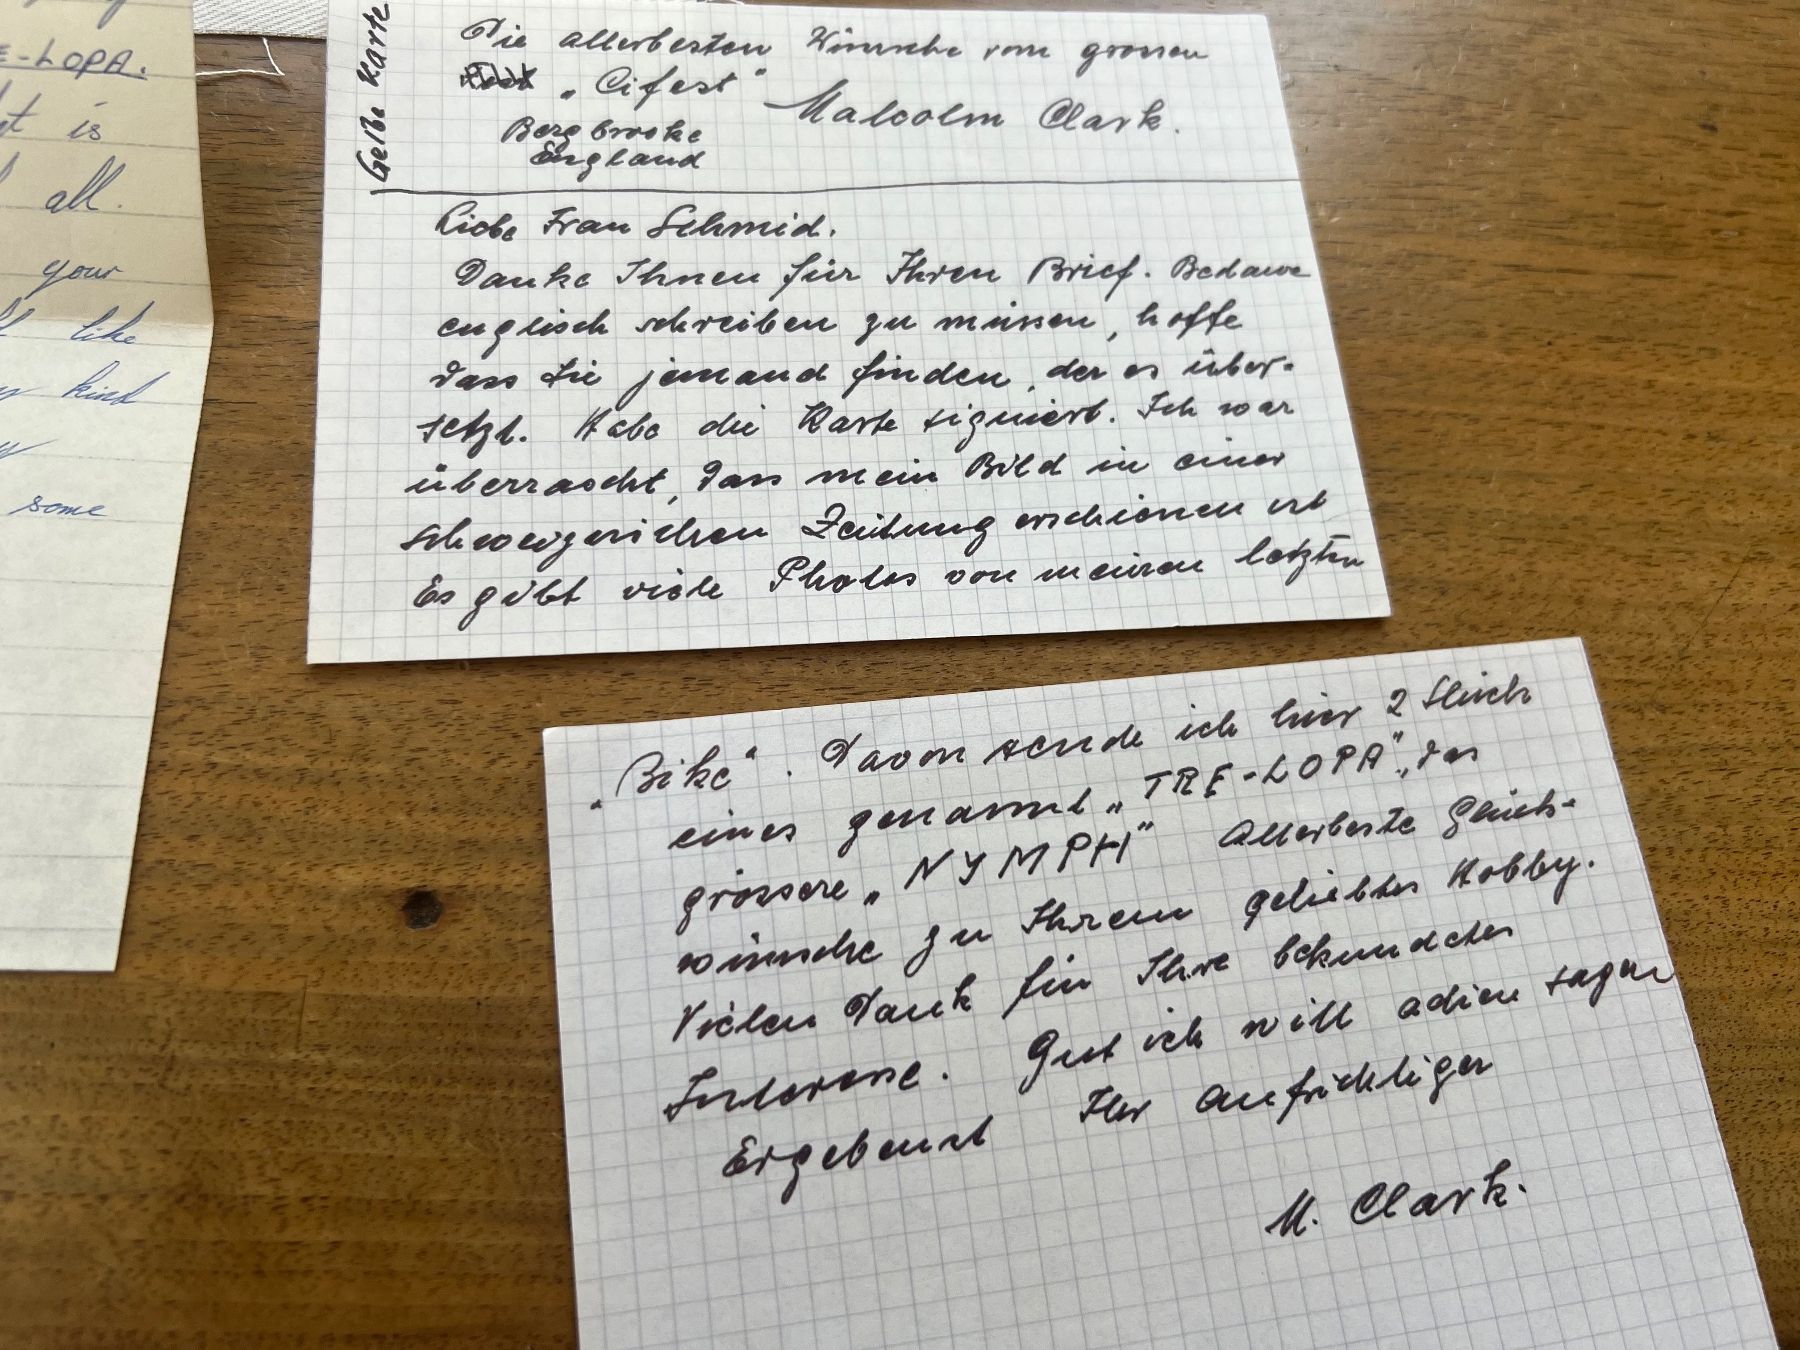 E-LOPA.
is
all.
your
like
kind
some
Gelbe Karte
Die allerbesten Wünsche vom grossen
„Cifest"
Malcolm Clark.
Bergbrooke
England
Liebe Frau Schmid.
Danke Ihnen für Ihren Brief. Bedaure
englisch schreiben zu müssen, hoffe
dass Sie jemand finden, der es über-
setzt. Habe die Karte signiert. Ich war
überrascht, dass mein Bild in einer
schweizerischen Zeitung erschienen ist
Es gibt viele Photos von meinen letzten
„Bike". Davon sende ich hier 2 Stück
eines genannt „TRE-LOPA", das
grössere „NYMPH" Allerbeste Glück-
wünsche zu Ihrem geliebtes Hobby.
Vielen Dank für Ihre bekundetes
Interesse. Gut ich will adieu sagen
Ergebenst Ihr aufrichtiger
M. Clark.